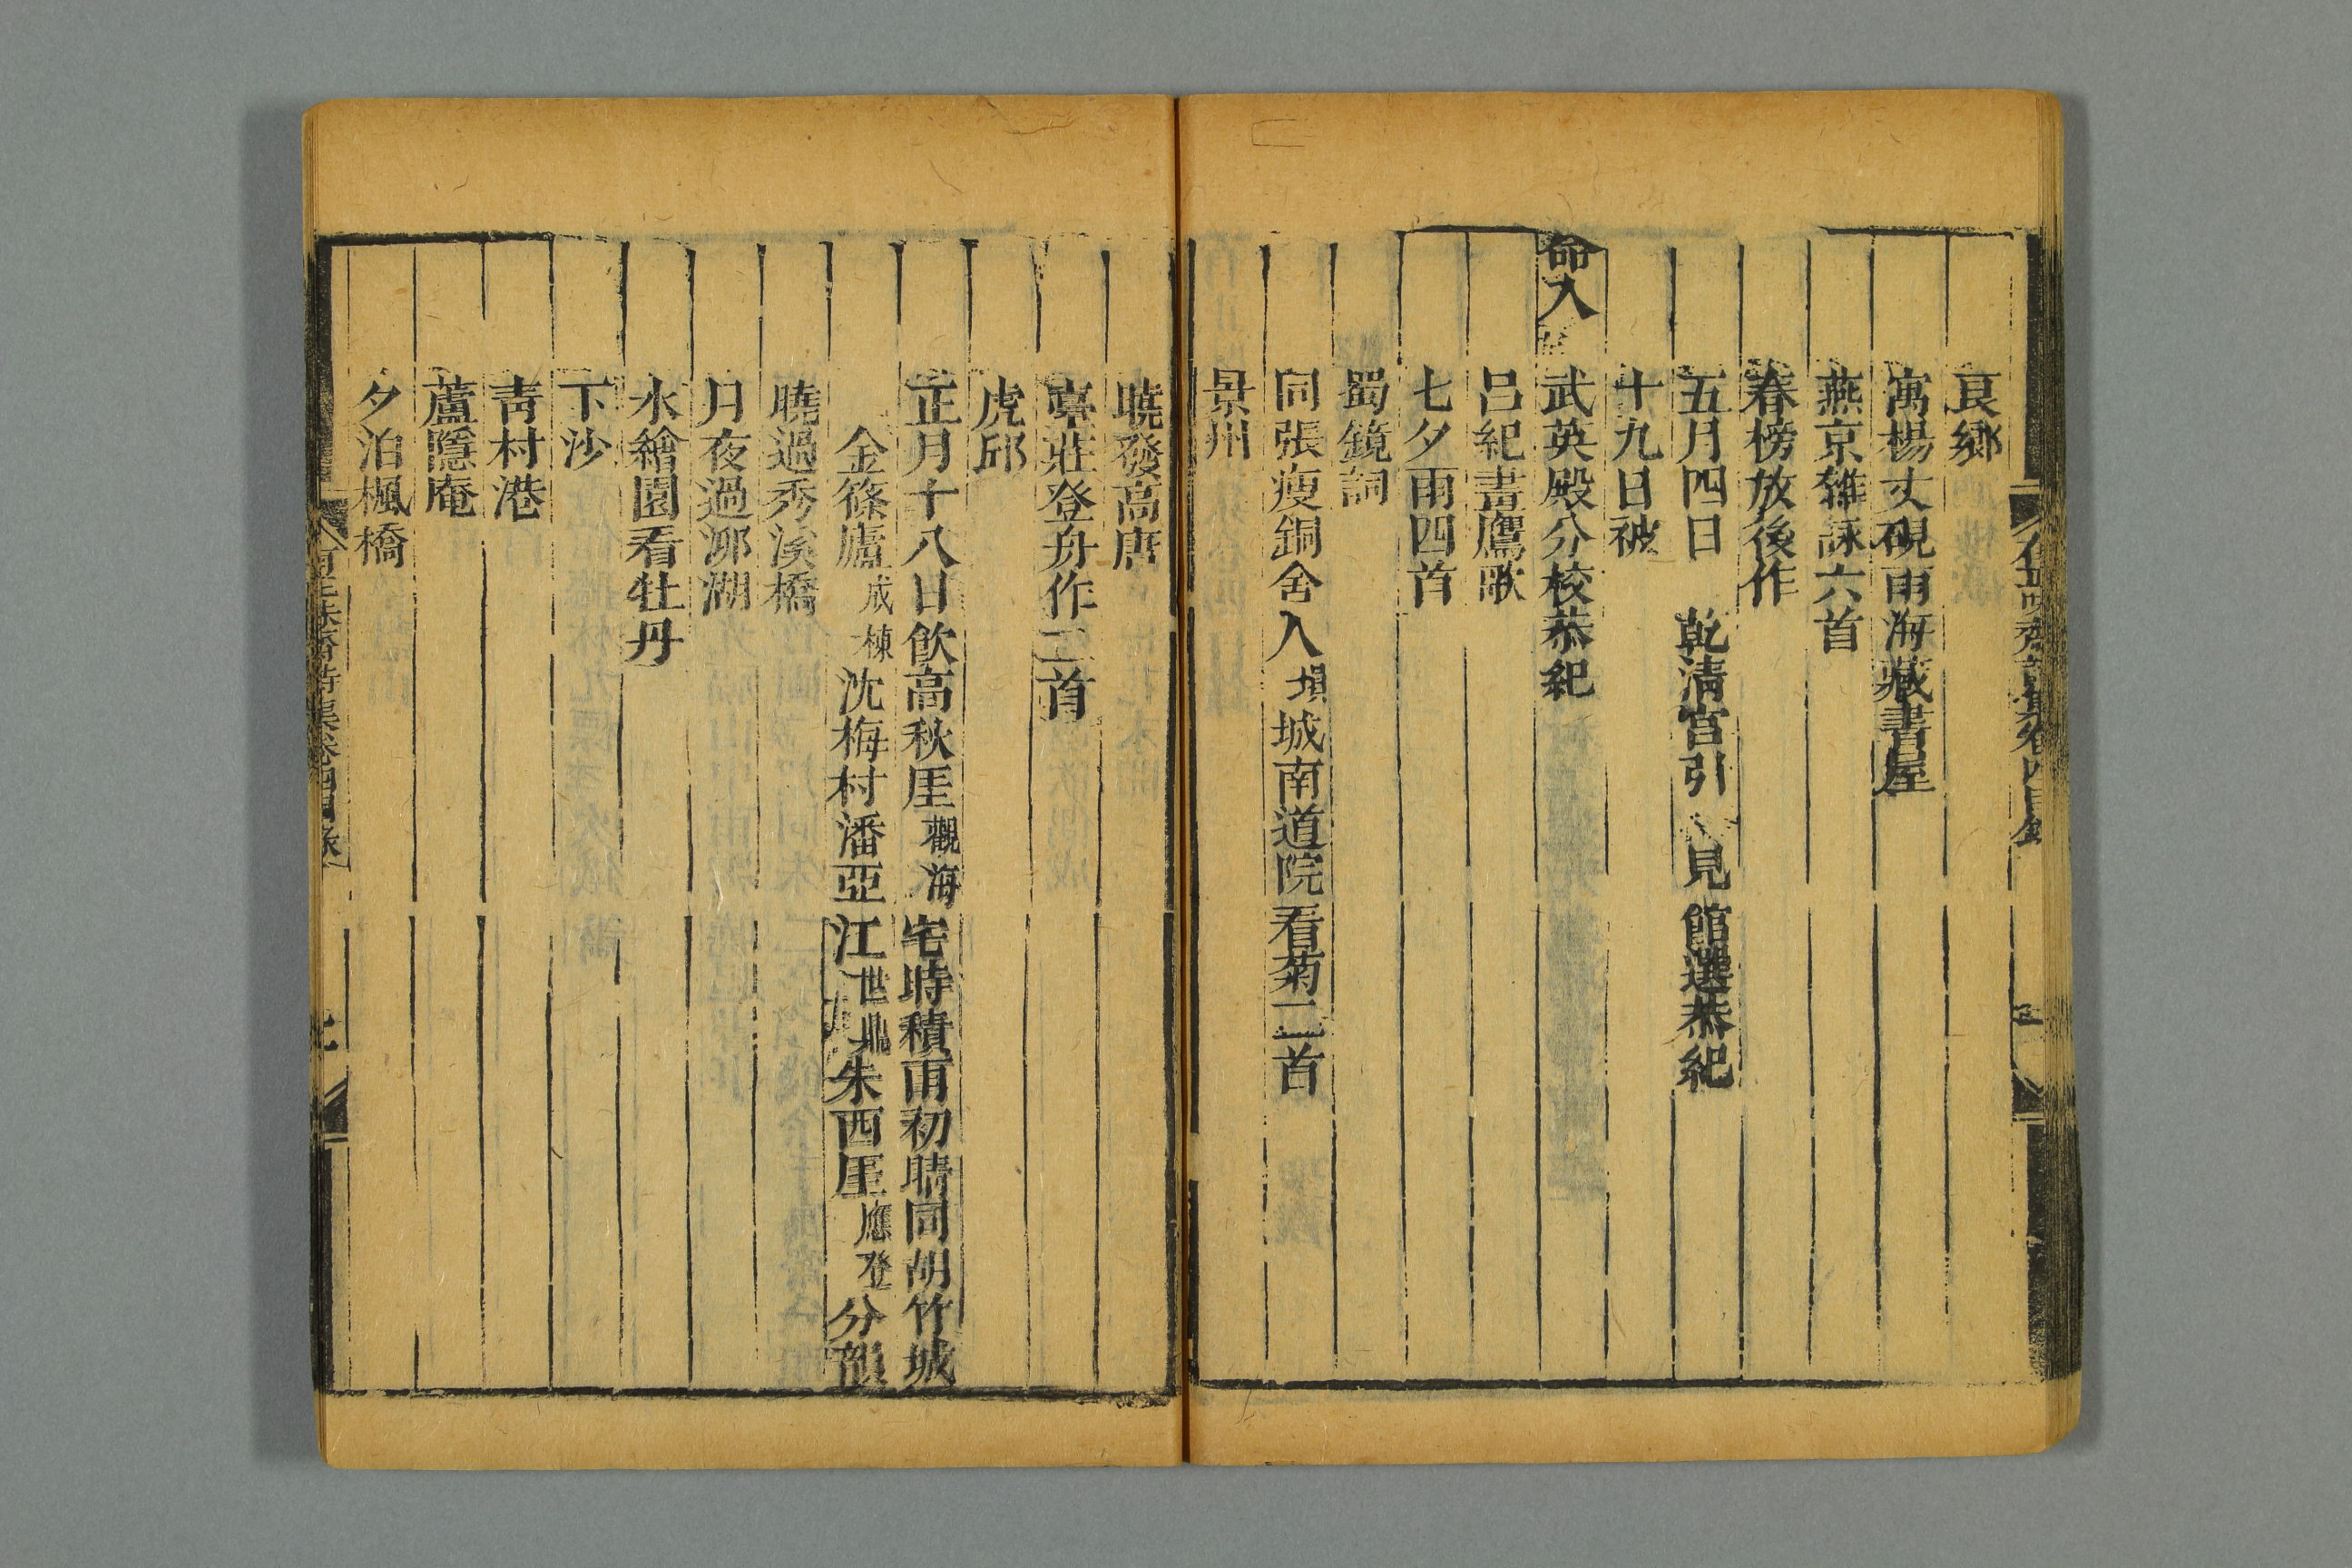 良鄉
寓楊丈硯雨海藏書屋
燕京雜詠六首
春榜放後作
五月四日 乾清宮引 見 館選恭紀
十九日被
命入 武英殿分校恭紀
呂紀畫鷹歌
七夕雨四首
蜀鏡詞
同張瘦銅舍人塤城南道院看菊二首
景州
曉發高唐
臺莊登舟作二首
虎邱
正月十八日飲高秋厓觀海宅時積雨初晴同胡竹城
金篠廬成棟沈梅村潘亞江世鼎朱西厓應登分韻
曉過秀溪橋
月夜過泖湖
水繪園看牡丹
下沙
青村港
蘆隱庵
夕泊楓橋